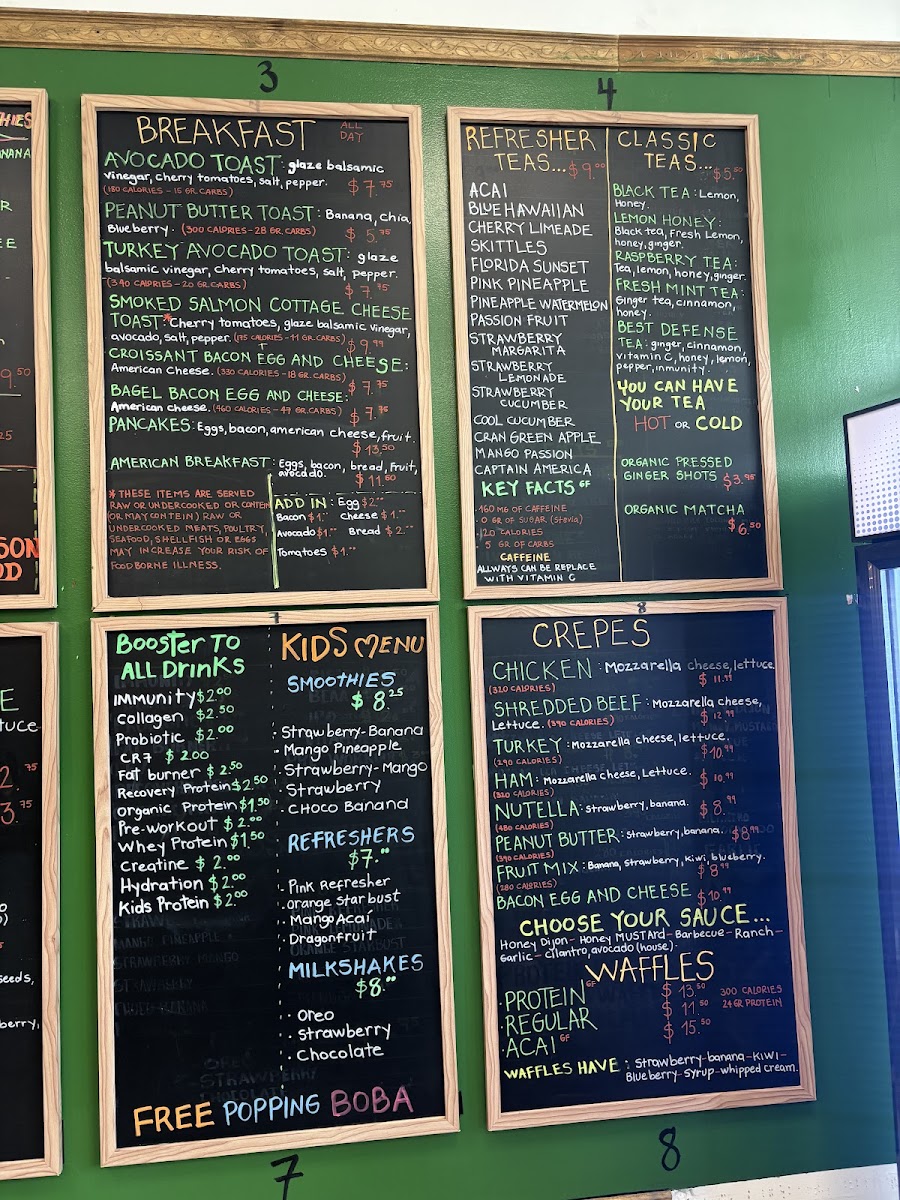 HIES
NANA
R
EE
9.50
25
SON
OD
E
tuce
2.75
3.75
seeds,
berry,
3
BREAKFAST ALL
DAY
AVOCADO TOAST: glaze balsamic
vinegar, cherry tomatoes, salt, pepper.
(180 CALORIES - 15 GR. CARBS) $7.75
PEANUT BUTTER TOAST: Banana, Chia,
Blueberry. (300 CALORIES - 28 GR. CARBS) $5.75
TURKEY AVOCADO TOAST: glaze
balsamic vinegar, cherry tomatoes, salt, pepper.
(340 CALORIES - 20 GR. CARBS) $7.75
SMOKED SALMON COTTAGE CHEESE
TOAST:* Cherry tomatoes, glaze balsamic vinegar,
avocado, salt, pepper. (175 CALORIES - 11 GR. CARBS) $9.99
CROISSANT BACON EGG AND CHEESE:
American Cheese. (330 CALORIES - 18 GR. CARBS) $7.75
BAGEL BACON EGG AND CHEESE:
American cheese. (460 CALORIES - 49 GR. CARBS) $7.75
PANCAKES: Eggs, bacon, american cheese, fruit.
$13.50
AMERICAN BREAKFAST: Eggs, bacon, bread, fruit,
avocado. $11.50
* THESE ITEMS ARE SERVED
RAW OR UNDERCOOKED OR CONTEIN
(OR MAY CONTEIN) RAW OR
UNDERCOOKED MEATS, POULTRY
SEAFOOD, SHELLFISH OR EGGS
MAY INCREASE YOUR RISK OF
FOODBORNE ILLNESS.
ADD IN: Egg $2.
Bacon $1. Cheese $1.
Avocado $1. Bread $2.
Tomatoes $1.
4
REFRESHER
TEAS... $9.00
ACAI
BLUE HAWAIIAN
CHERRY LIMEADE
SKITTLES
FLORIDA SUNSET
PINK PINEAPPLE
PINEAPPLE WATERMELON
PASSION FRUIT
STRAWBERRY
MARGARITA
STRAWBERRY
LEMONADE
STRAWBERRY
CUCUMBER
COOL CUCUMBER
CRAN GREEN APPLE
MANGO PASSION
CAPTAIN AMERICA
KEY FACTS GF
·160 MG OF CAFFEINE
·0 GR OF SUGAR (Stevia)
·20 CALORIES
· 5 GR OF CARBS
CAFFEINE
ALLWAYS CAN BE REPLACE
WITH VITAMIN C
CLASSIC
TEAS... $5.50
BLACK TEA: Lemon,
Honey.
LEMON HONEY:
Black tea, Fresh Lemon,
honey, ginger.
RASPBERRY TEA:
Tea, lemon, honey, ginger.
FRESH MINT TEA:
Ginger tea, cinnamon,
honey.
BEST DEFENSE
TEA: ginger, cinnamon,
vitamin C, honey, lemon,
pepper, inmunity.
YOU CAN HAVE
YOUR TEA
HOT OR COLD
ORGANIC PRESSED
GINGER SHOTS $3.95
ORGANIC MATCHA
$6.50
7
Booster TO
ALL Drinks
IMMUNITY $2.00
Collagen $2.50
Probiotic $2.00
CR7 $2.00
Fat burner $2.50
Recovery Protein $2.50
Organic Protein $1.50
Pre-workout $2.00
Whey Protein $1.50
Creatine $2.00
Hydration $2.00
Kids Protein $2.00
KIDS MENU
SMOOTHIES
$8.25
· Strawberry-Banana
· Mango Pineapple
· Strawberry-Mango
· Strawberry
· CHOCO Banana
REFRESHERS
$7.00
· Pink Refresher
· orange starbust
· Mango Acaí
· Dragonfruit
MILKSHAKES
$8.00
· Oreo
· strawberry
· Chocolate
FREE POPPING BOBA
7
8
CREPES
CHICKEN: Mozzarella cheese, lettuce.
(320 CALORIES) $11.99
SHREDDED BEEF: Mozzarella cheese,
Lettuce. (390 CALORIES) $12.99
TURKEY: Mozzarella cheese, lettuce.
(290 CALORIES) $10.99
HAM: Mozzarella cheese, Lettuce.
(320 CALORIES) $10.99
NUTELLA: strawberry, banana. $8.99
(480 CALORIES)
PEANUT BUTTER: strawberry, banana. $8.99
(390 CALORIES)
FRUIT MIX: Banana, strawberry, kiwi, blueberry.
(280 CALORIES) $8.99
BACON EGG AND CHEESE $10.99
CHOOSE YOUR SAUCE...
Honey Dijon - Honey MUSTArd - Barbecue - Ranch -
Garlic - cilantro, avocado (house).
WAFFLES
· PROTEIN GF $13.50 300 CALORIES
24 GR PROTEIN
· REGULAR $11.50
· ACAI GF $15.50
WAFFLES HAVE: Strawberry-banana-KIWI-
Blueberry-syrup-whipped cream.
8